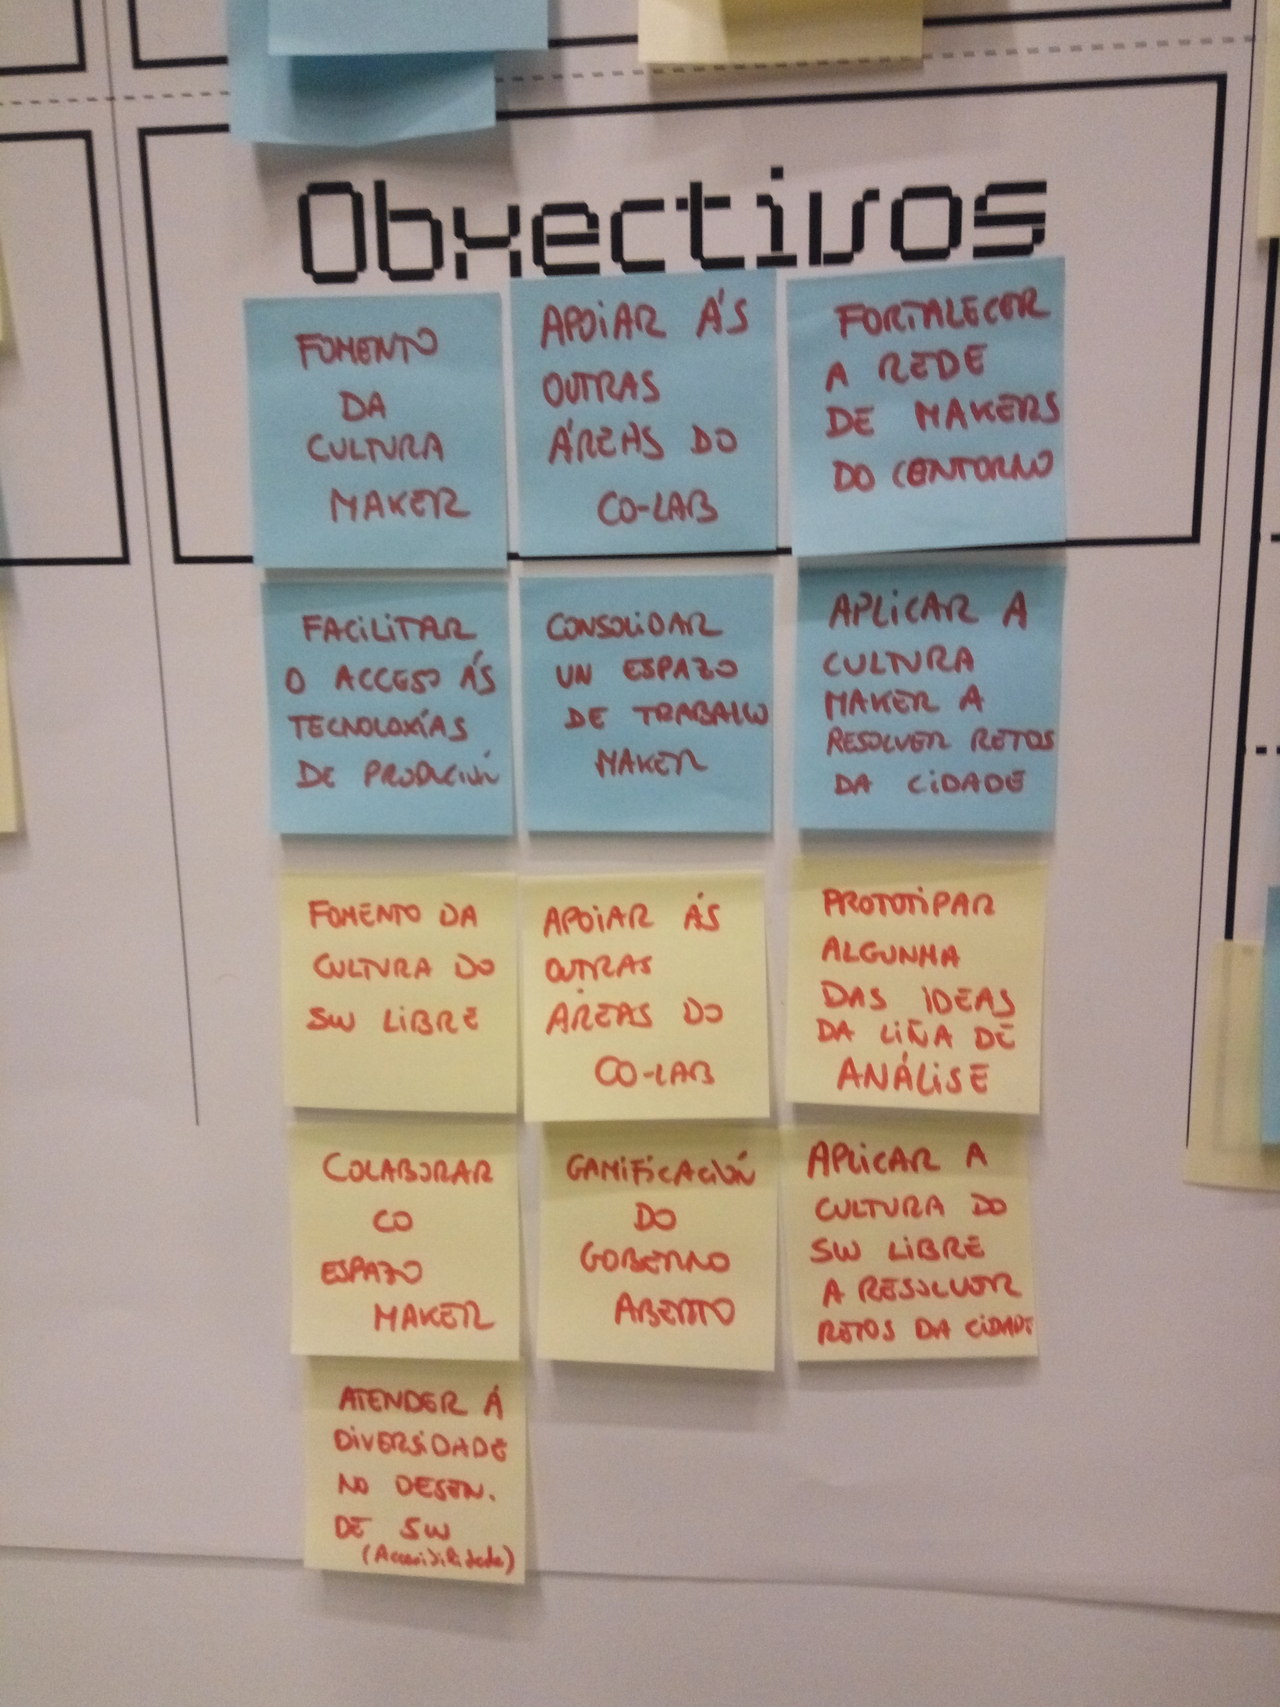 Obxectivos
FOMENTO
DA
CULTURA
MAKER
APOiAR ÁS
OUTRAS
ÁREAS DO
CO-LAB
FORTALECER
A REDE
DE MAKERS
DO CENTORNO
FACiLiTAR
O ACCESO ÁS
TECNOLOXÍAS
DE PRODUCIÓN
CONSOLiDAR
UN ESPAZO
DE TRABALLO
MAKER
APLiCAR A
CULTURA
MAKER A
RESOLVER RETOS
DA CiDADE
FOMENTO DA
CULTURA DO
SW LiBRE
APOiAR ÁS
OUTRAS
ÁREAS DO
CO-LAB
PROTOTiPAR
ALGUNHA
DAS iDEAS
DA LiÑA DE
ANÁLiSE
COLABORAR
CO
ESPAZO
MAKER
GAMiFiCACiÓN
DO
GOBERNO
ABERTO
APLiCAR A
CULTURA DO
SW LiBRE
A RESOLVER
RETOS DA CiDADE
ATENDER Á
DiVERSiDADE
NO DESEN.
DE SW
(Accesibilidade)